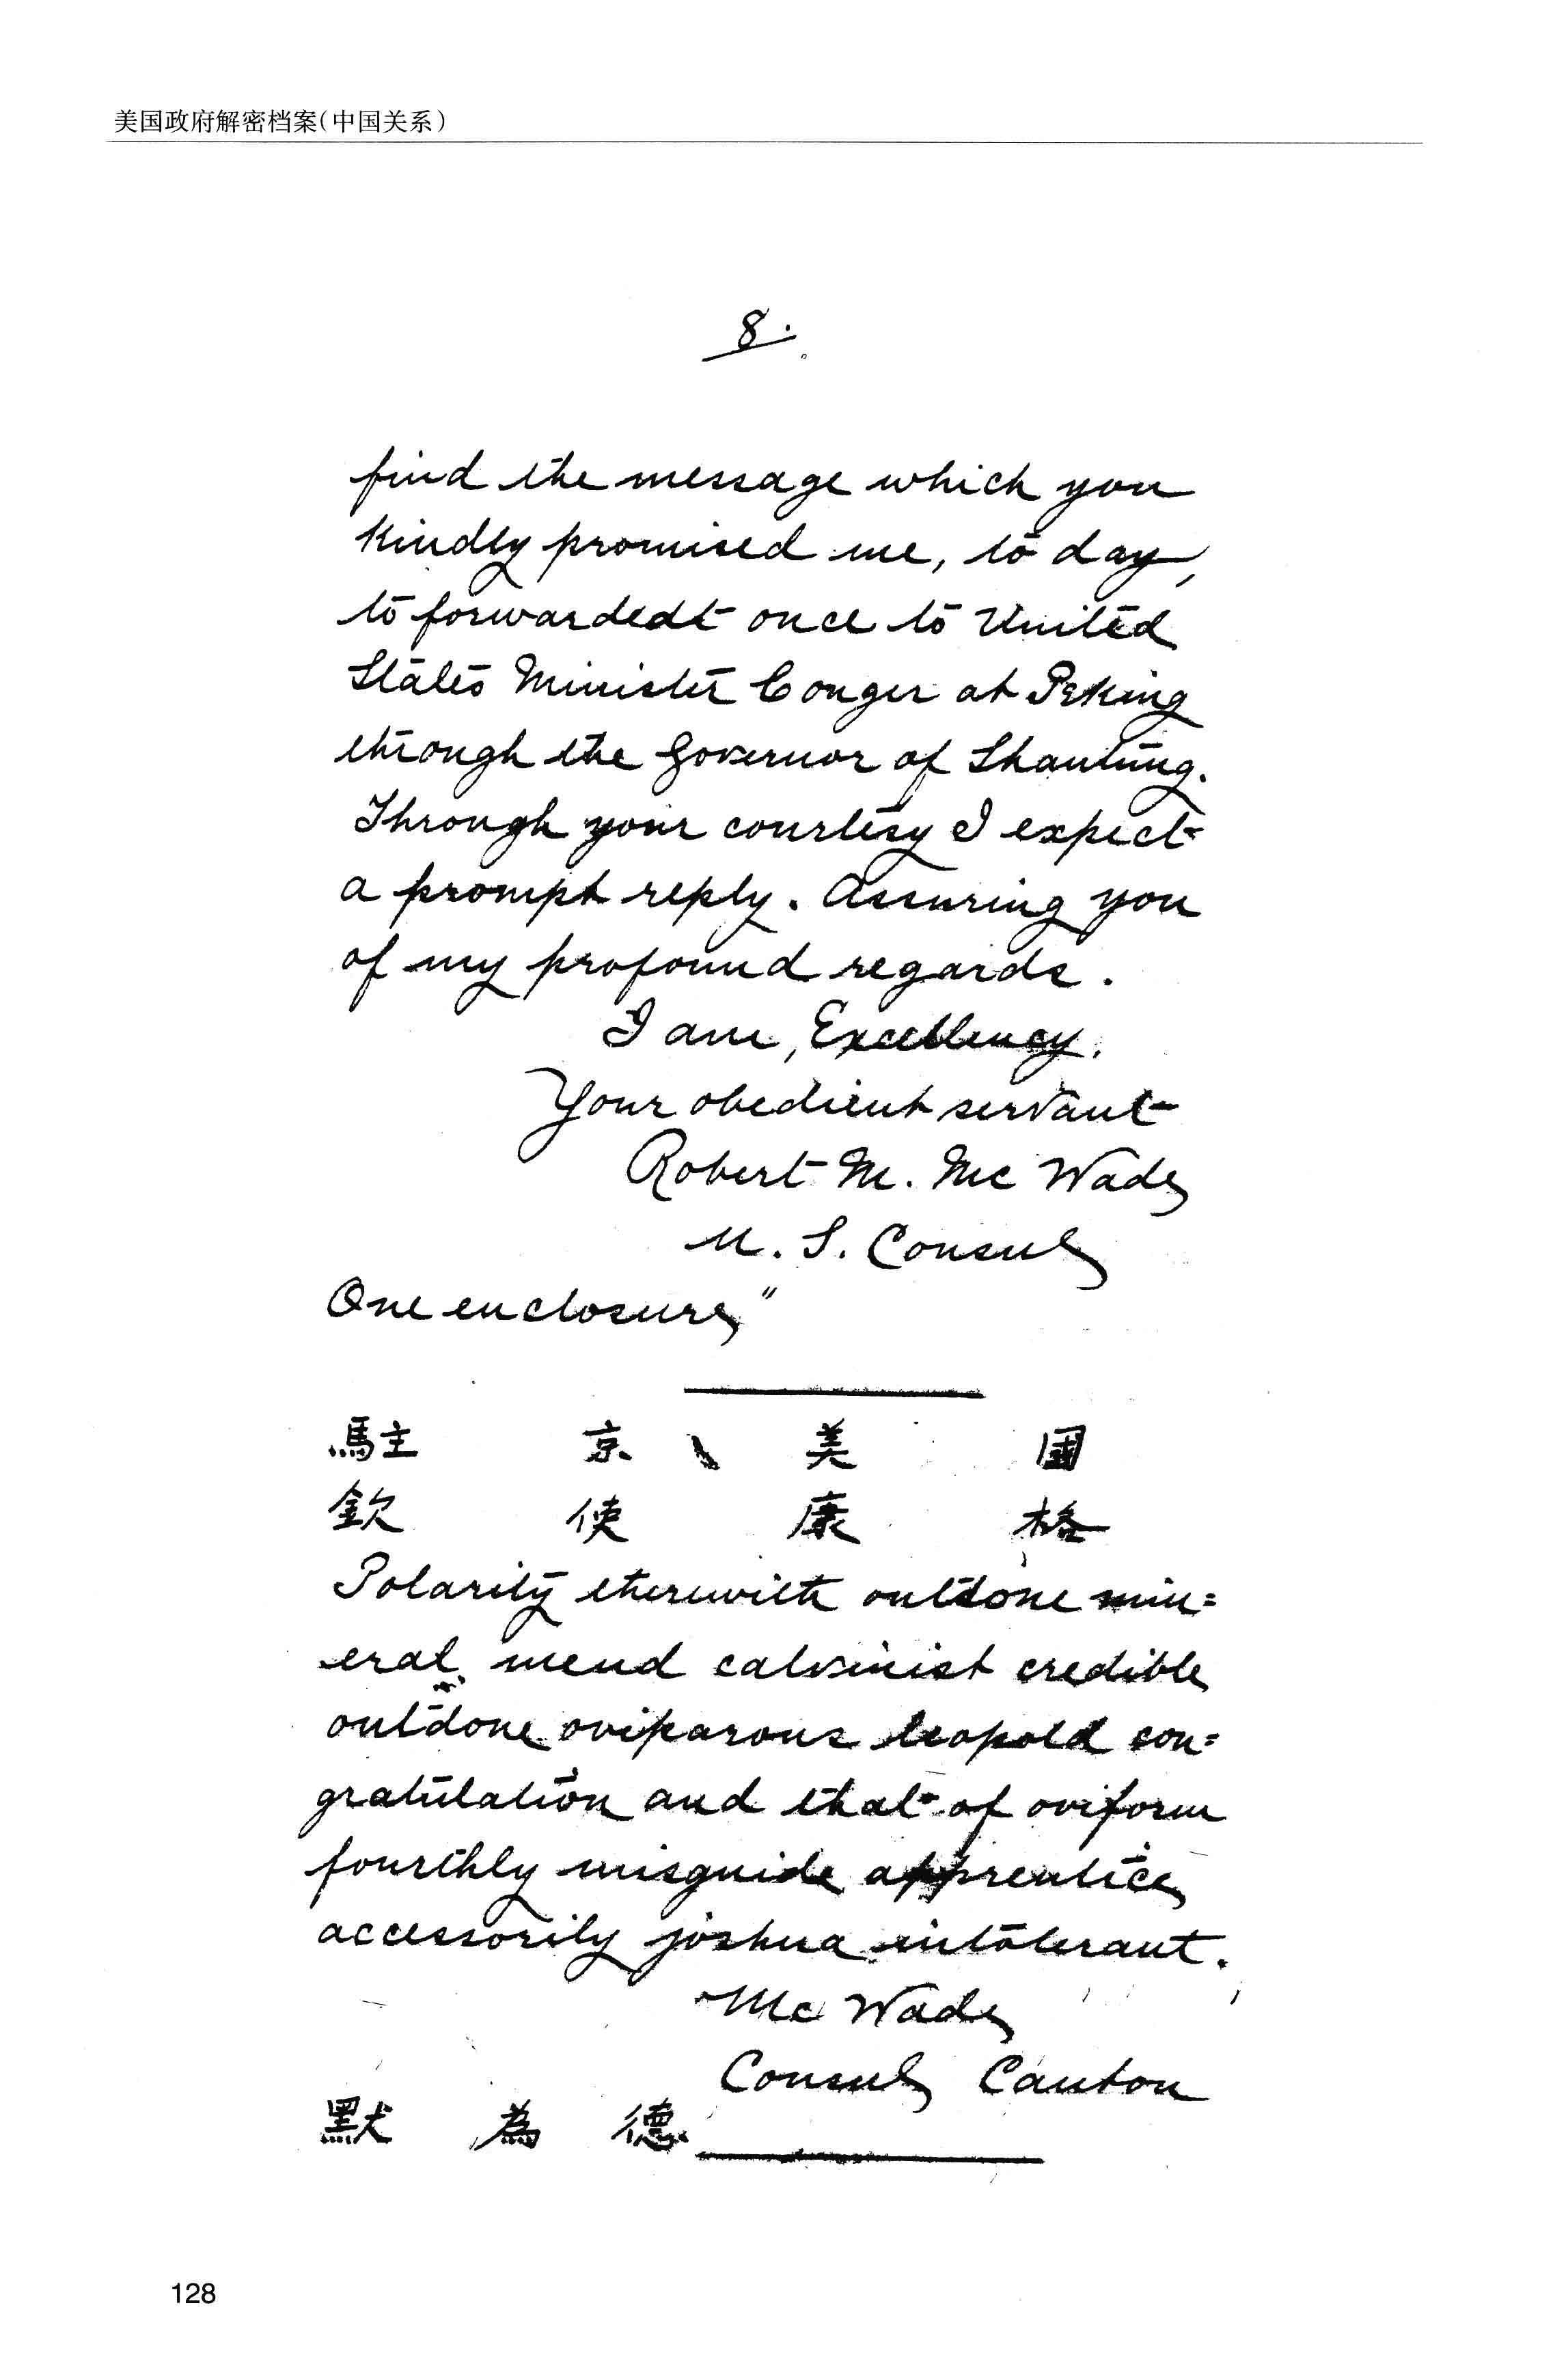 美国政府解密档案(中国关系)
8.
find the message which you
kindly promised me, to day,
to forwardedt once to United
States Minister Conger at Peking
through the Governor of Shantung.
Through your courtesy I expect
a prompt reply. Assuring you
of my profound regards.
I am, Excellency,
Your obedient servant
Robert M. McWade
U. S. Consul
One enclosure"
駐 京 美 國
欽 使 康 格
Polarity therewith outdone min=
eral mend calvinist credible
outdone oviparous leopold con=
gratulation and that of oviform
fourthly misguide apprentice
accessorily joshua intolerant.
McWade
Consul Canton
默 為 德
128